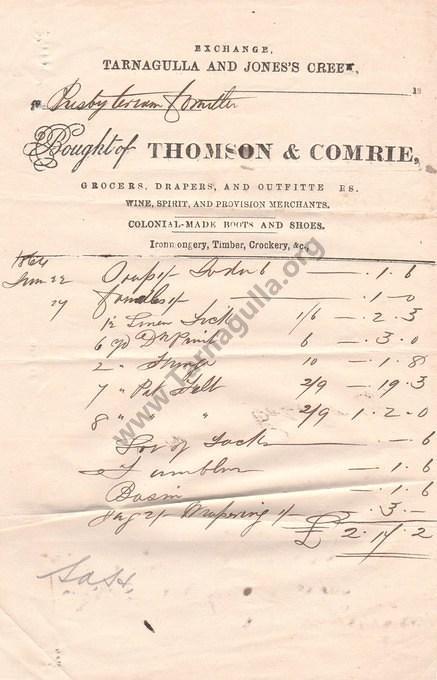 EXCHANGE,
TARNAGULLA AND JONES'S CREEK,
18
Presbyterian Comitter
Bought of THOMSON & COMRIE,
GROCERS, DRAPERS, AND OUTFITTE RS.
WINE, SPIRIT, AND PROVISION MERCHANTS.
COLONIAL-MADE BOOTS AND SHOES.
Ironmongery, Timber, Crockery, &c.,
1864
22 Soap 1/- Soda 6 — . 1 . 6
27 Candles 1/- — . 1 — 0
1½ Linen Tick 1/6 — . 2 . 3
6 yd Print 6 — . 3 . 0
2 " 10 — . 1 . 8
7 " Felt 2/9 — . 19 . 3
8 " " " 2/9 1 . 2 . 0
of Tacks — . 6
Tumbler — . 1 . 6
Basin — . 1 . 6
2/- 1/- . 3 . —
£ 2 . 17 . 2
www.Tarnagulla.org